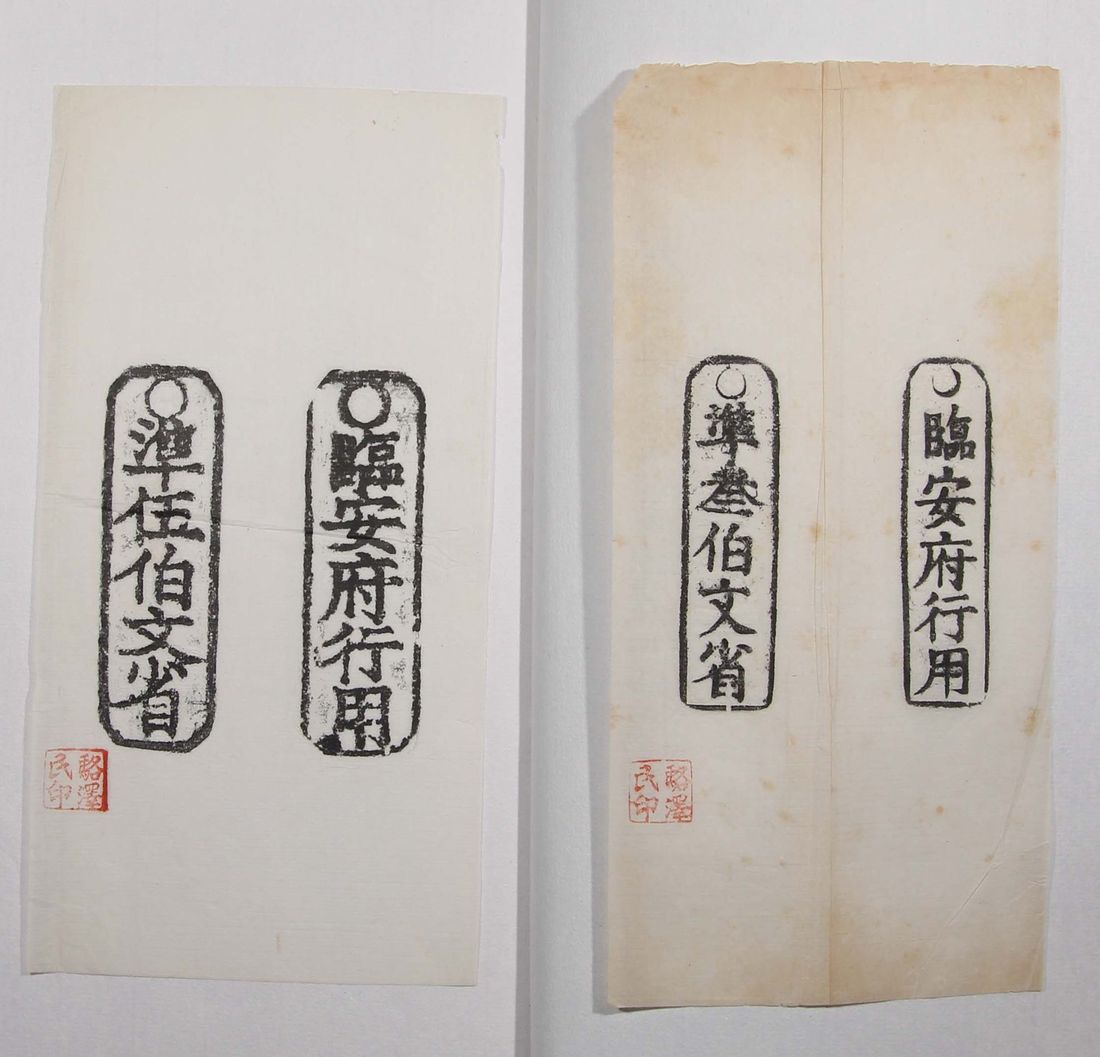 臨安府行用
準叁伯文省
駱澤
民印
臨安府行用
準伍伯文省
駱澤
民印